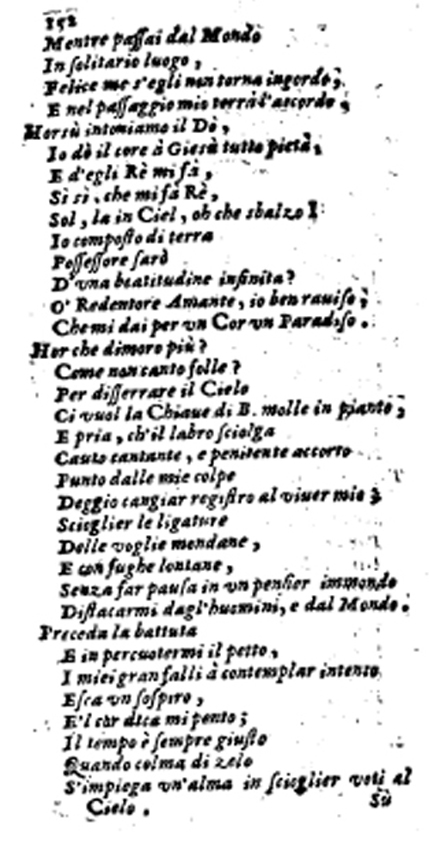 152
Mentre paſſai dal Mondo
In ſolitario luogo,
Felice me s'egli non torna ingordo;
E nel paſſaggio mio terrà l'accordo.
Horsù intoniamo il Dò,
Io dò il core à Giesù tutto pietà,
E d'egli Rè mi fà,
Sì sì, che mi fà Rè,
Sol, la in Ciel, oh che sbalzo!
Io compoſto di terra
Poſſeſſore ſarò
D'vna beatitudine infinita?
O' Redentore Amante, io ben rauiſo;
Che mi dai per vn Cor vn Paradiſo.
Hor che dimoro più?
Come non canto folle?
Per diſſerrare il Cielo
Ci vuol la Chiaue di B. molle in pianto;
E pria, ch'il labro ſciolga
Cauto cantante, e penitente accorto
Punto dalle mie colpe
Deggio cangiar regiſtro al viuer mio;
Scieglier le ligature
Delle voglie mondane,
E con fughe lontane,
Senza far pauſa in vn penſier immondo
Diſtacarmi dagl'huomini, e dal Mondo.
Preceda la battuta
E in percuotermi il petto,
I miei gran falli à contemplar intento
Eſca vn ſoſpiro,
E'l cor dica mi pento;
Il tempo è ſempre giuſto
Quando colma di zelo
S'impiega vn'alma in ſcieglier voti al
Cielo.
Sù